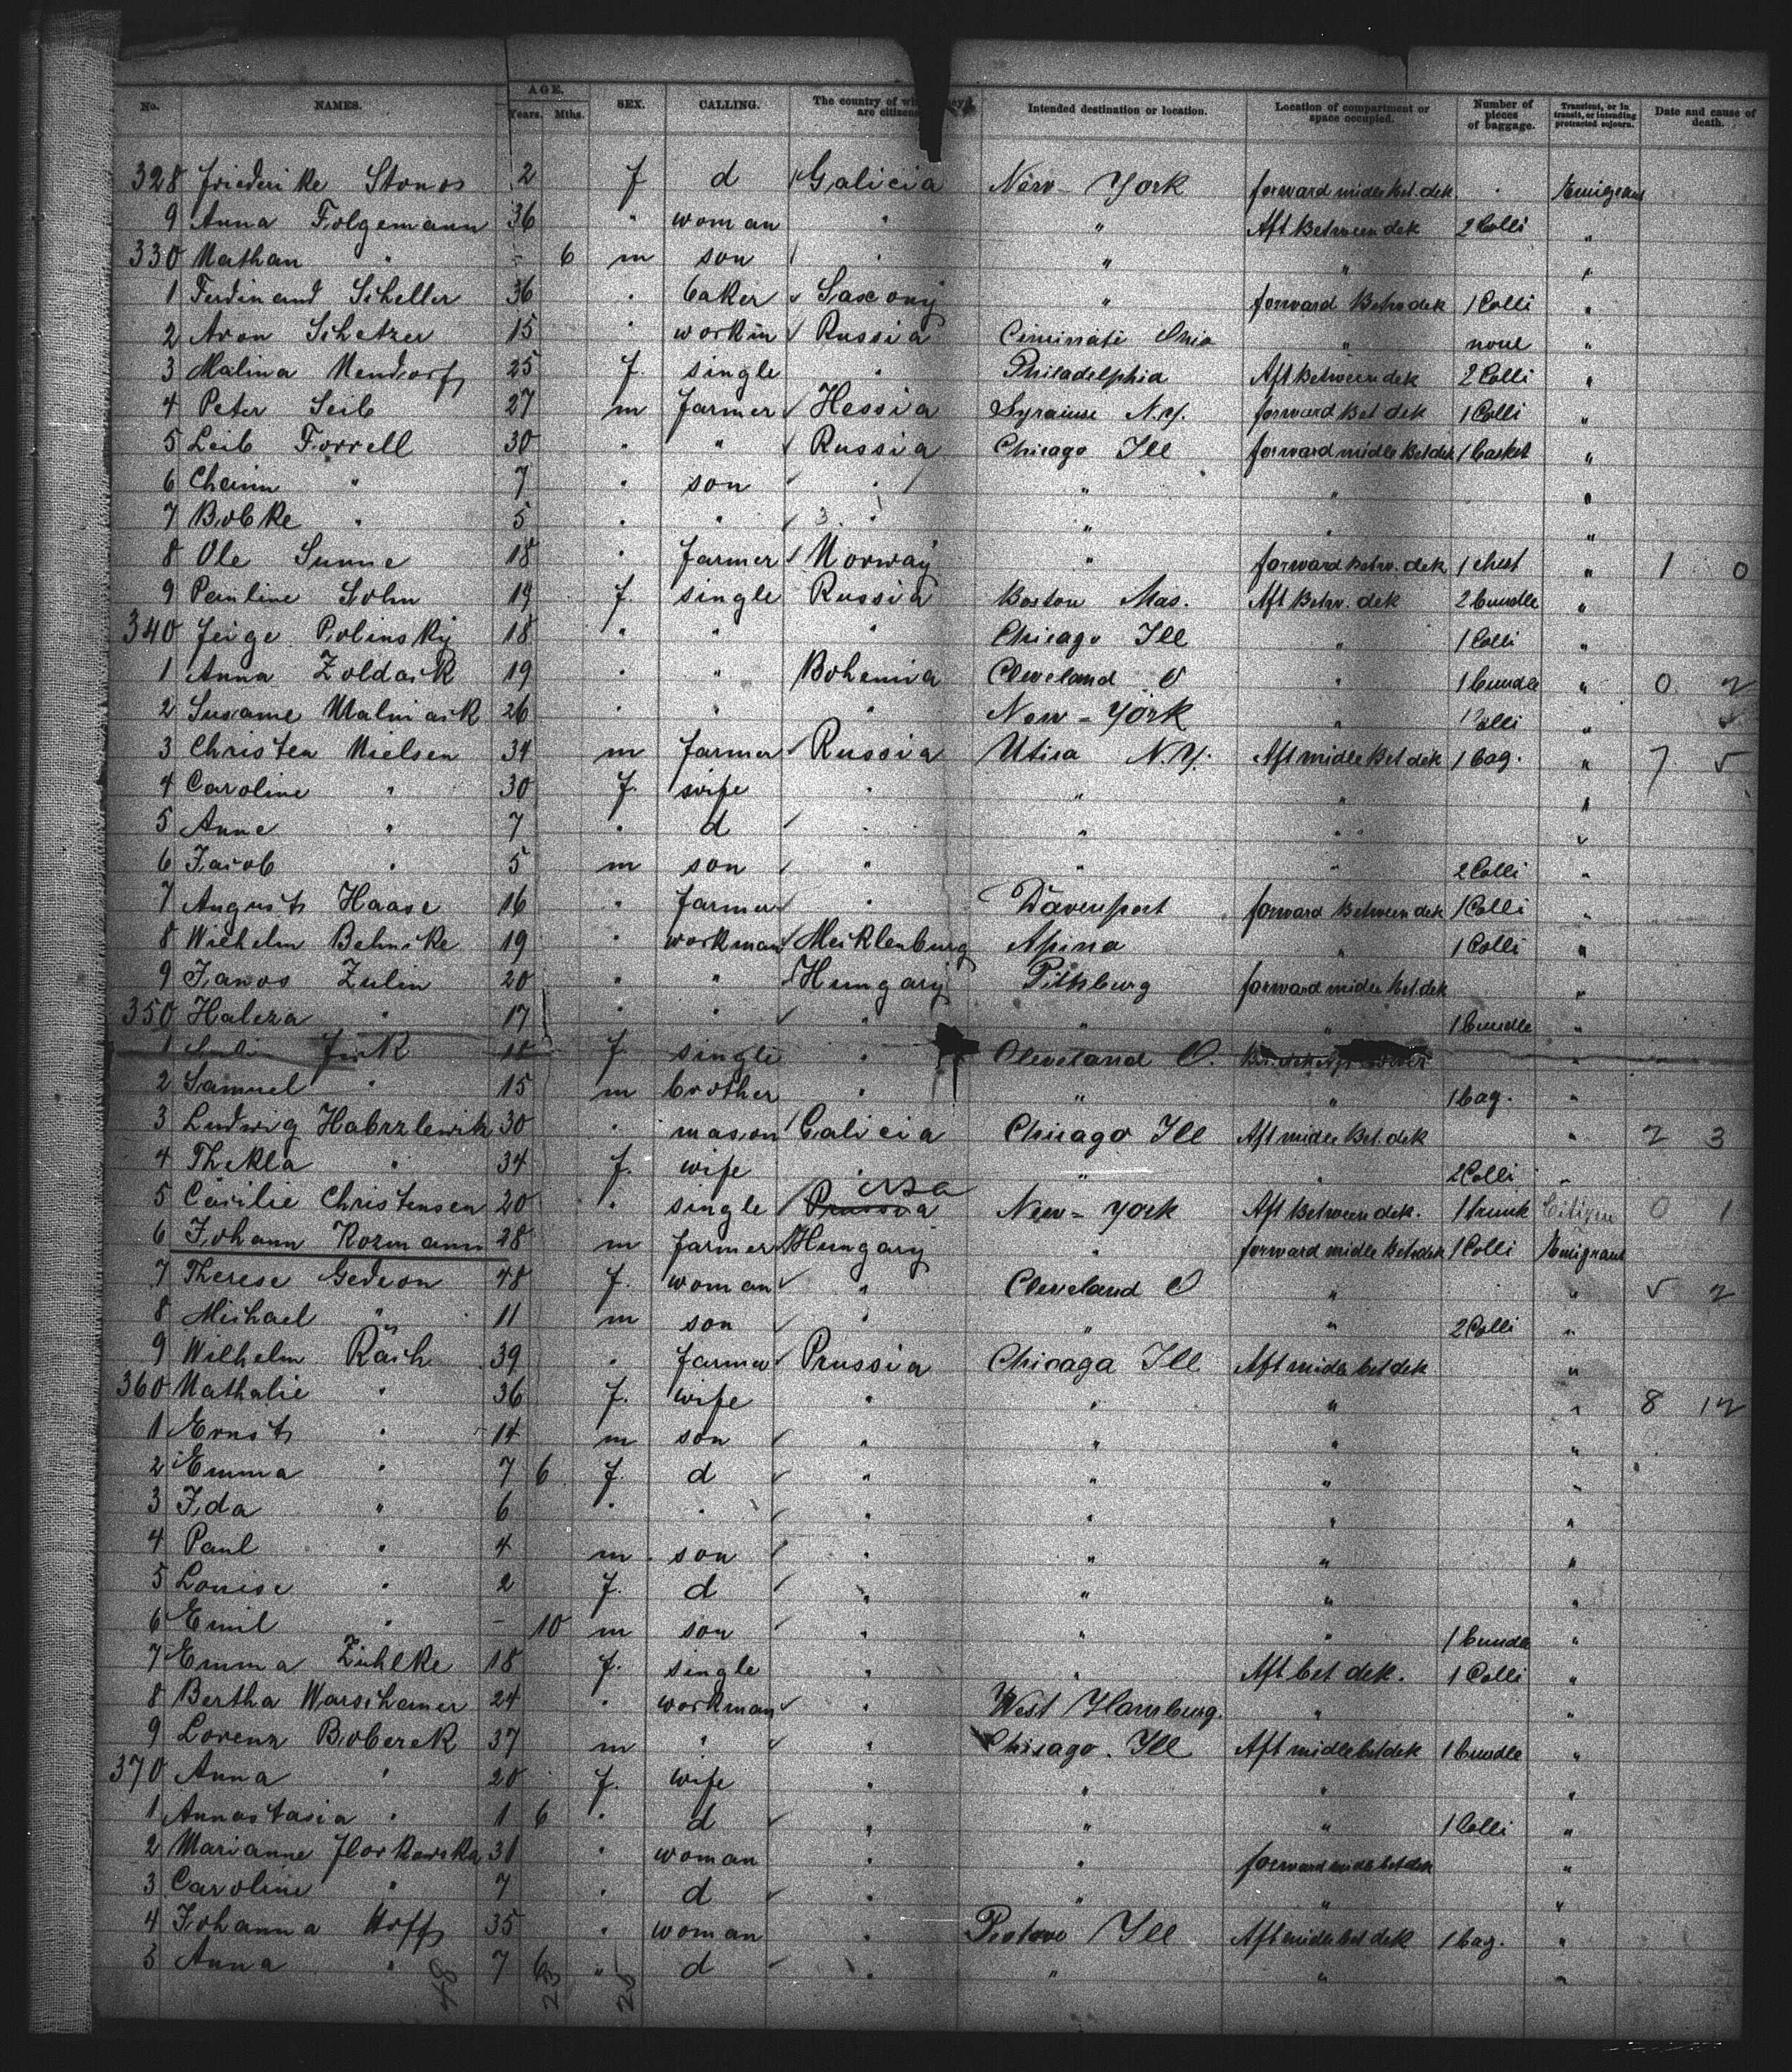 No. NAMES. AGE. Years. Mths. SEX. CALLING. The country of are citizens Intended destination or location. Location of compartment or space occupied. Number of pieces of baggage. Transient, or in transit, or intending protracted sojourn. Date and cause of death.
328 Friederike 2 f d Galicia New-York forward midle bet. dek. Emigrant
9 Anna Folgemann 36 " woman " " Aft Between dek 2 Colli "
330 Nathan " - 6 m son " " " "
1 Ferdinand Scheller 36 " baker Saxony " forward Betw dek 1 Colli "
2 Aron Schetzer 15 " workm Russia Cininati Ohio " none "
3 Malina Mendorff 25 f. single " Philadelphia Aft Between dek 2 Colli "
4 Peter Seib 27 m farmer Hessia Syraiuse N.Y. forward Bet dek 1 Colli "
5 Leib Forrell 30 " " Russia Chicago Ill forward midle Bet dek 1 basket "
6 Chaim " 7 " son " " " "
7 Bobke " 5 " " " " " "
8 Ole Sunne 18 " farmer Norway " forward Betw. dek 1 chest " 1 0
9 Pauline Sohn 19 f. single Russia Boston Mas. Aft Betw. dek 2 bundle "
340 Feige Polinsky 18 " " " Chicago Ill " 1 Colli "
1 Anna Zoldask 19 " " Bohemia Cleveland O " 1 bundle " 0 2
2 Susame 26 " " " New-York " 1 Colli "
3 Christen Nielsen 34 m farmer Russia Utica N.Y. Aft midle Bet dek 1 bag. " 7 5
4 Caroline " 30 f. wife " " " "
5 Anne " 7 " d " " " "
6 Jacob " 5 m son " " " 2 Colli "
7 August Haase 16 " farmer " Davenport forward Between dek 1 Colli "
8 Wilhelm Behncke 19 " workman Mecklenburg Apina " 1 Colli "
9 Janos Zulin 20 " " Hungary Pittsburg forward midle bet. dek "
350 Haleza " 17 " " " " " 1 bundle "
1 Juli Fink 18 f single " Cleveland O. "
2 Samuel " 15 m brother " " " 1 bag. "
3 Ludwig Habrzlewitz 30 " mason Galicia Chicago Ill Aft midle Bet. dek " 2 3
4 Thekla " 34 f. wife " " " 2 Colli "
5 Cäcilie Christensen 20 " single Prussia USA New-York Aft Between dek. 1 trunk Citizen 0 1
6 Johann Rozmann 28 m farmer Hungary " forward midle Betw dek 1 Colli Emigrant
7 Therese Gedeon 48 f. woman " Cleveland O " " 5 2
8 Michael " 11 m son " " " 2 Colli "
9 Wilhelm Räsch 39 " farmer Prussia Chicaga Ill Aft midle bet dek "
360 Nathalie " 36 f. wife " " " " 8 12
1 Ernst " 14 m son " " " "
2 Emma " 7 6 f. d " " " "
3 Ida " 6 " " " " " "
4 Paul " 4 m son " " " "
5 Louise " 2 f. d " " " "
6 Emil " - 10 m son " " " 1 bundle "
7 Emma Zühlke 18 f. single " " Aft bet dek. 1 Colli "
8 Bertha Warschamer 24 " workman " West Hamburg. " "
9 Lorenz Boberek 37 m " " Chicago. Ill Aft midle bet dek 1 bundle "
370 Anna " 20 f. wife " " " "
1 Annastasia " 1 6 " d " " " 1 Colli "
2 Marianne Florkowska 31 " woman " " forward midle bet dek "
3 Caroline " 7 " d " " " "
4 Johanna Hoff 35 " woman " Ill Aft midle bet dek 1 bag. "
5 Anna " 7 6 " d " " " "
48 23 25